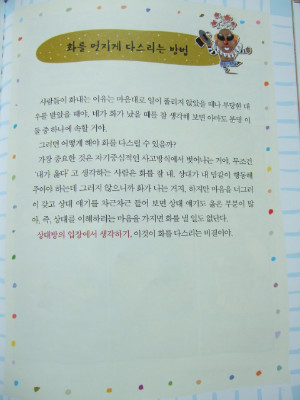 화를 멋지게 다스리는 방법
사람들이 화내는 이유는 마음대로 일이 풀리지 않았을 때나 부당한 대
우를 받았을 때야. 네가 화가 났을 때를 잘 생각해 보면 아마도 분명 이
둘 중 하나에 속할 거야.
그러면 어떻게 해야 화를 다스릴 수 있을까?
가장 중요한 것은 자기중심적인 사고방식에서 벗어나는 거야. 무조건
'내가 옳다'고 생각하는 사람은 화를 잘 내. 상대가 내 맘같이 행동해
주어야 하는데 그러지 않으니까 화가 나는 거지. 하지만 마음을 너그러
이 갖고 상대 얘기를 차근차근 들어 보면 상대 얘기도 옳은 부분이 많
아. 즉, 상대를 이해하려는 마음을 가지면 화를 낼 일도 없단다.
상대방의 입장에서 생각하기, 이것이 화를 다스리는 비결이야.